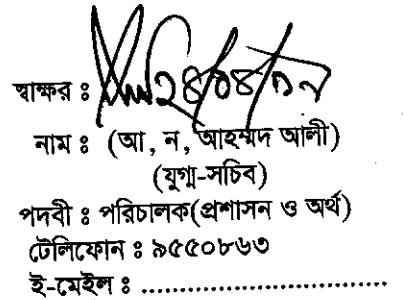 স্বাক্ষর ঃ ২৪/০৪/১৭
নাম ঃ (আ, ন, আহম্মদ আলী)
(যুগ্ম-সচিব)
পদবী ঃ পরিচালক(প্রশাসন ও অর্থ)
টেলিফোন ঃ ৯৫৫০৮৬৩
ই-মেইল ঃ ................................